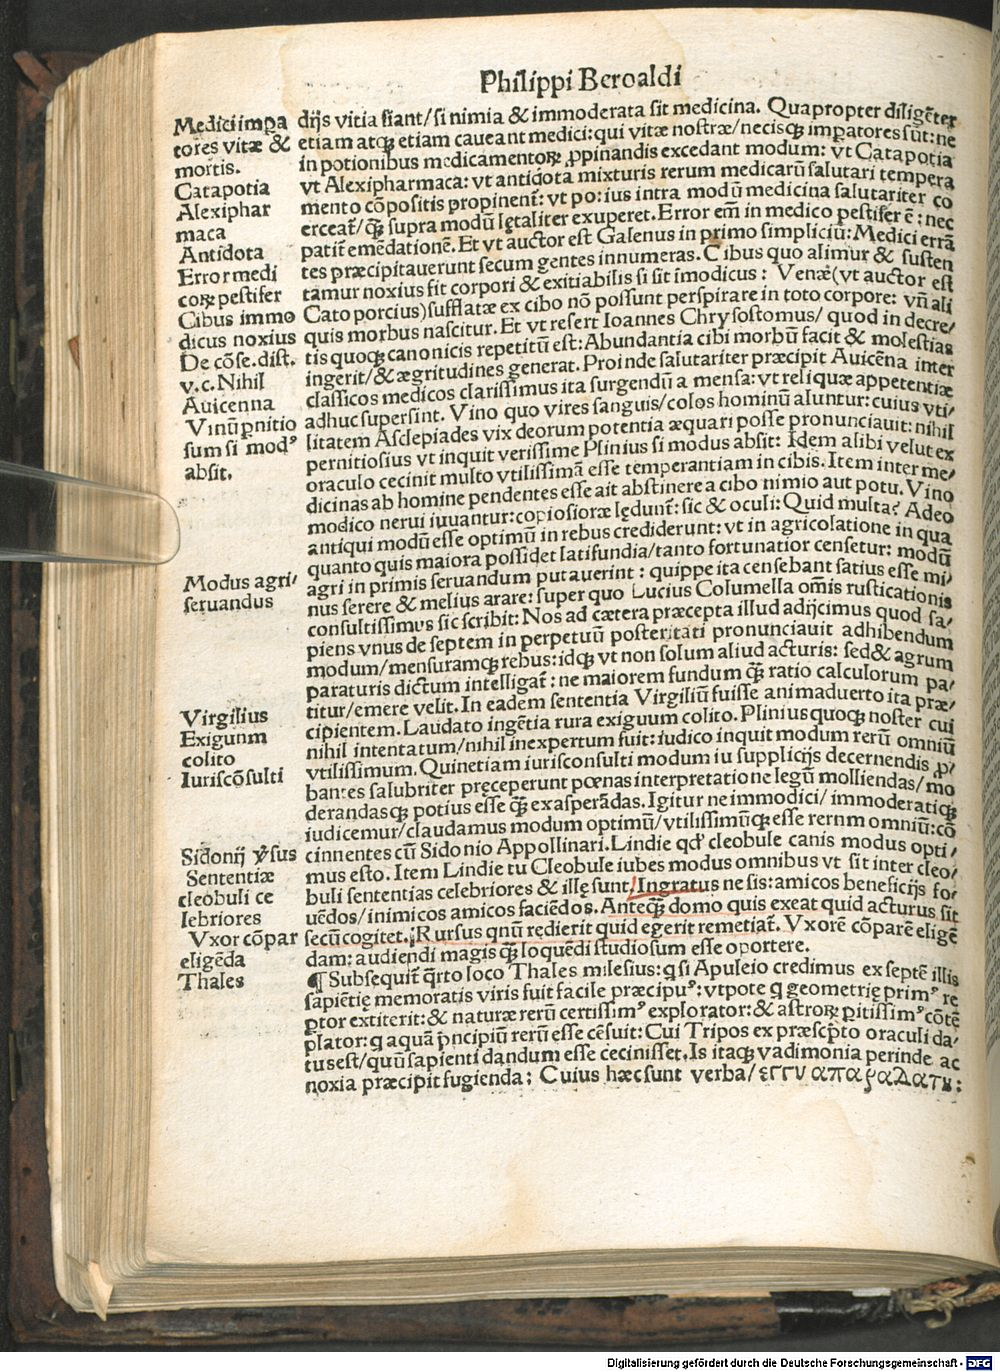 Philippi Beroaldi
Medici impa
tores vitæ &
mortis.
Catapotia
Alexiphar
maca
Antidota
Error medi
coꝝ pestifer
Cibus immo
dicus noxius
De cõse. dist.
v. c. Nihil
Auicenna
Vinũ ꝑnitio
sum si modꝰ
absit.
Modus agri/
seruandus
Virgilius
Exigunm
colito
Iuriscõsulti
Sidonij ꝟsus
Sententiæ
cleobuli ce
lebriores
Vxor cõpar
eligẽda
Thales
dijs vitia fiant/si nimia & immoderata sit medicina. Quapropter diligẽter
etiam atqꝫ etiam caueant medici: qui vitæ nostræ/necisqꝫ impatores sũt: ne
in potionibus medicamentoꝝ ꝓpinandis excedant modum: vt Catapotia
vt Alexipharmaca: vt antidota mixturis rerum medicarũ salutari tempera
mento cõpositis propinent̃: vt potius intra modũ medicina salutariter co
erceat̃/qꝫ̃ supra modũ lętaliter exuperet. Error em̃ in medico pestifer ẽ: nec
patit̃ emẽdationẽ. Et vt auctor est Galenus in primo simpliciũ: Medici errã
tes præcipitauerunt secum gentes innumeras. Cibus quo alimur & susten
tamur noxius fit corpori & exitiabilis si sit ĩmodicus: Venæ(vt auctor est
Cato porcius)sufflatæ ex cibo nõ possunt perspirare in toto corpore: vñ ali
quis morbus nascitur. Et vt refert Ioannes Chrysostomus/ quod in decre/
tis quoqꝫ canonicis repetitũ est: Abundantia cibi morbũ facit & molestias
ingerit/& ægritudines generat. Proinde salutariter præcipit Auicẽna inter
classicos medicos clarissimus ita surgendũ a mensa: vt reliquæ appetentiæ
adhuc supersint. Vino quo vires sanguis/colos hominũ aluntur: cuius vti/
litatem Asclepiades vix deorum potentia æquari posse pronunciauit: nihil
pernitiosius vt inquit verissime Plinius si modus absit: Idem alibi velut ex
oraculo cecinit multo vtilissimã esse temperantiam in cibis. Item inter me/
dicinas ab homine pendentes esse ait abstinere a cibo nimio aut potu. Vino
modico nerui iuuantur: copiosioræ lędunt̃: sic & oculi: Quid multa? Adeo
antiqui modũ esse optimũ in rebus crediderunt: vt in agricolatione in qua
quanto quis maiora possidet latifundia/tanto fortunatior censetur: modũ
agri in primis seruandum putauerint: quippe ita censebant satius esse mi/
nus serere & melius arare: super quo Lucius Columella om̃is rusticationis
consultissimus sic scribit: Nos ad cætera præcepta illud adijcimus quod sa/
piens vnus de septem in perpetuũ posteritati pronunciauit adhibendum
modum/mensuramqꝫ rebus: idqꝫ vt non solum aliud acturis: sed & agrum
paraturis dictum intelligat̃: ne maiorem fundum qꝫ̃ ratio calculorum pa/
titur/emere velit. In eadem sententia Virgiliũ fuisse animaduerto ita præ/
cipientem. Laudato ingẽtia rura exiguum colito. Plinius quoqꝫ noster cui
nihil intentatum/nihil inexpertum fuit: iudico inquit modum rerũ omniũ
vtilissimum. Quinetiam iurisconsulti modum iu supplicijs decernendis ꝓ/
bantes salubriter pręceperunt pœnas interpretatione legũ molliendas/mo
derandasqꝫ potius esse qꝫ̃ exasperãdas. Igitur ne immodici/ immoderatiqꝫ
iudicemur/claudamus modum optimũ/vtilissimũqꝫ esse rernm omniũ: cõ
cinnentes cũ Sidonio Appollinari. Lindie qd̓ cleobule canis modus opti/
mus esto. Item Lindie tu Cleobule iubes modus omnibus vt sit inter cleo/
buli sententias celebriores & illę sunt/Ingratus ne sis: amicos beneficijs fo/
uẽdos/inimicos amicos faciẽdos. Anteqꝫ̃ domo quis exeat quid acturus sit
secũ cogitet. Rursus qnũ redierit quid egerit remetiat̃. Vxorẽ cõparẽ eligẽ
dam: audiendi magis qꝫ̃ loquẽdi studiosum esse oportere.
¶ Subsequit̃ q̃rto loco Thales milesius: q̃ si Apuleio credimus ex septẽ illis
sapiẽtię memoratis viris fuit facile præcipuꝰ: vtpote q̇ geometrię primꝰ re
ꝑtor extiterit: & naturæ rerũ certissimꝰ explorator: & astroꝝ ꝑitissimꝰ cõtẽ
plator: q aquã pncipiũ rerũ esse cẽsuit: Cui Tripos ex præscṗto oraculi da/
tus est/quũ sapienti dandum esse cecinisset. Is itaqꝫ vadimonia perinde ac
noxia præcipit fugienda: Cuius hæc sunt verba/ εγγυ απαραλατη:
Digitalisierung gefördert durch die Deutsche Forschungsgemeinschaft - DFG